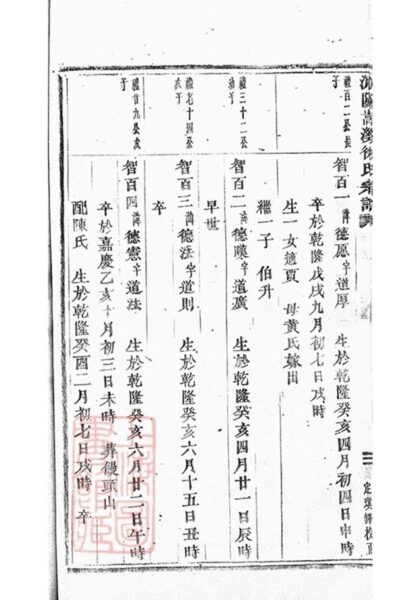 浦陽嵩溪徐氏宗譜
禮百二公長
子
智百一諱德愿字道厚 生於乾隆癸亥四月初四日申時
卒於乾隆戊戌九月初七日戌時
生一女適賈 母黃氏嫁出
禮三十二公
幼子
智百二諱德曔字道廣 生於乾隆癸亥四月廿一日辰時
繼一子 伯升
早世
禮七十四公
次子
智百三諱德法字道則 生於乾隆癸亥六月十五日丑時
卒
禮廿九公次
子
智百四諱德憲字道法 生於乾隆癸亥六月廿二日午時
卒於嘉慶乙亥十月初三日未時 葬饅頭山
配陳氏 生於乾隆癸酉二月初七日戌時 卒